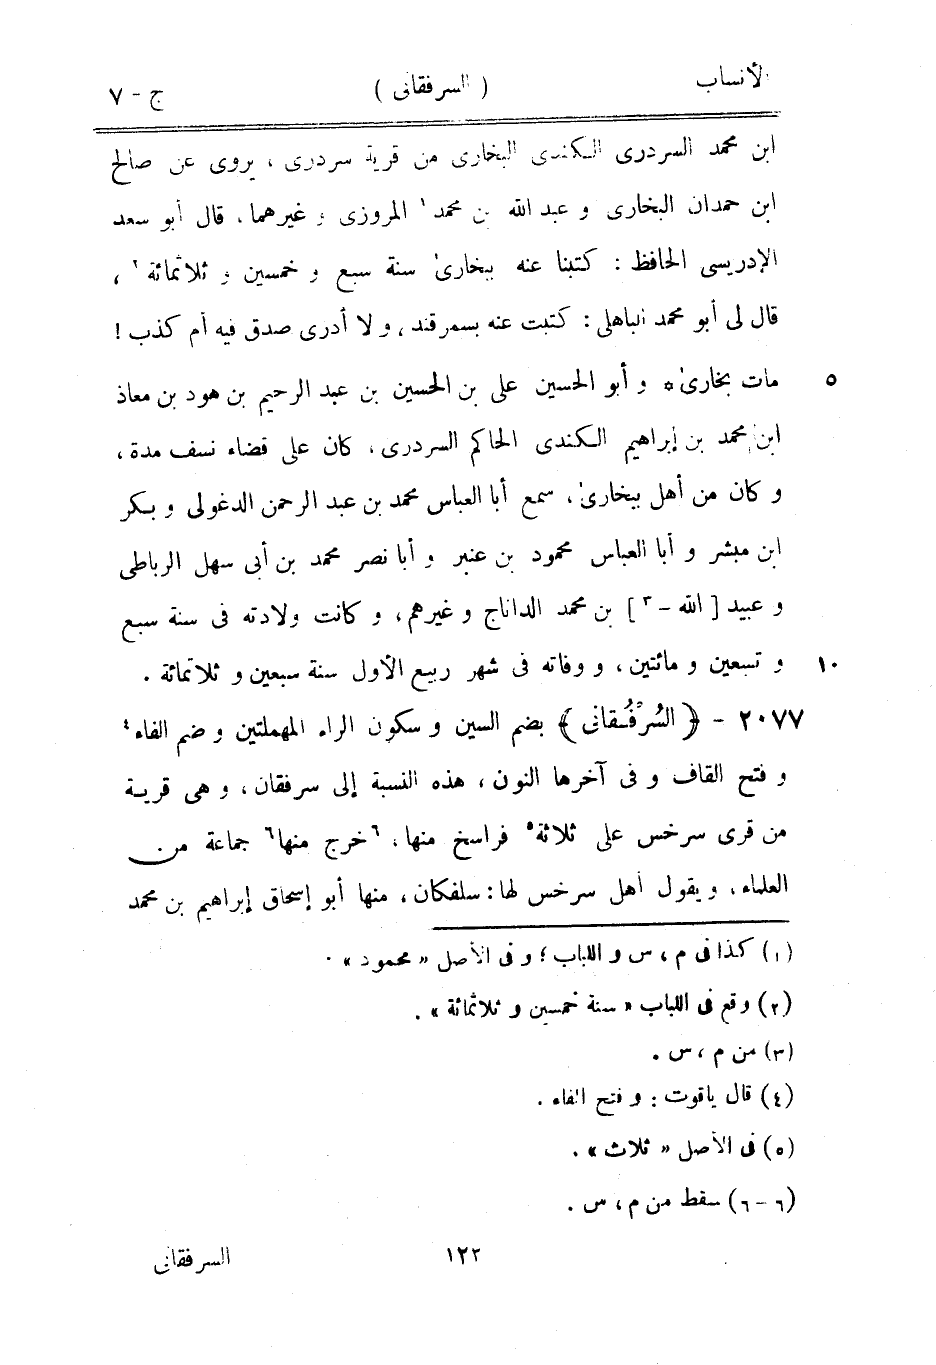 الأنساب ( السرفقانى ) ج - ٧
ابن محمد السردرى الكندى البخارى من قرية سردرى ، يروى عن صالح
ابن حمدان البخارى و عبد الله بن محمد١ المروزى و غيرهما ، قال أبو سعد
الإدريسى الحافظ : كتبنا عنه ببخارىٰ سنة سبع و خمسين و ثلاثمائة٢ ،
قال لى أبو محمد الباهلى : كتبت عنه بسمرقند ، و لا أدرى صدق فيه أم كذب !
مات بخارىٰ * و أبو الحسين على بن الحسين بن عبد الرحيم بن هود بن معاذ ٥
ابن محمد بن إبراهيم الكندى الحاكم السردرى ، كان على قضاء نسف مدة ،
و كان من أهل ببخارىٰ ، سمع أبا العباس محمد بن عبد الرحمن الدغولى و بكر
ابن مبشر و أبا العباس محمود بن عنبر و أبا نصر محمد بن أبى سهل الرباطى
و عبيد [ الله - ٣ ] بن محمد الداناج و غيرهم ، و كانت ولادته فى سنة سبع
و تسعين و مائتين ، و وفاته فى شهر ربيع الأول سنة سبعين و ثلاثمائة . ١٠
٢٠٧٧ - ﴿ السُرْفُقانى ﴾ بضم السين و سكون الراء المهملتين و ضم الفاء٤
و فتح القاف و فى آخرها النون ، هذه النسبة إلى سرفقان ، و هى قرية
من قرى سرخس على ثلاثة٥ فراسخ منها ، ٦خرج منها٦ جماعة من
العلماء ، و يقول أهل سرخس لها : سلفكان ، منها أبو إسحاق إبراهيم بن محمد
(١) كذا فى م ، س و اللباب ؛ و فى الأصل « محمود » .
(٢) وقع فى اللباب « سنة خمسين و ثلاثمائة » .
(٣) من م ، س .
(٤) قال ياقوت : و فتح الفاء .
(٥) فى الأصل « ثلاث » .
(٦ - ٦) سقط من م ، س .
١٢٢ السرفقانى